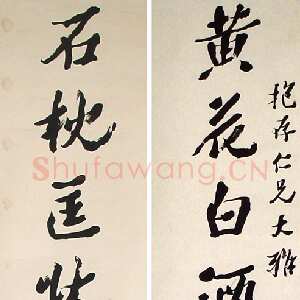 抱存仁兄大雅
黄花白酒
石枕匡
Shufawang.CN